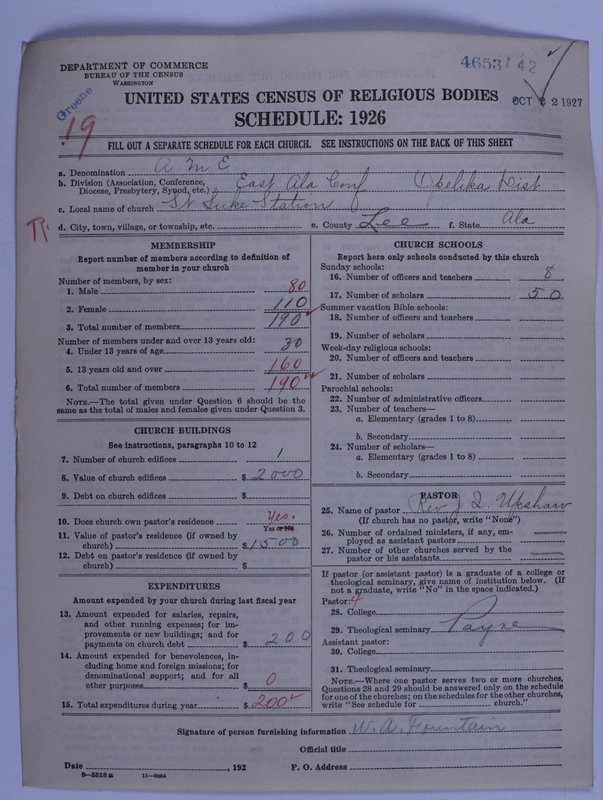 DEPARTMENT OF COMMERCE
BUREAU OF THE CENSUS
WASHINGTON
4653 142
Greene
19
UNITED STATES CENSUS OF RELIGIOUS BODIES
OCT 22 1927
SCHEDULE: 1926
FILL OUT A SEPARATE SCHEDULE FOR EACH CHURCH. SEE INSTRUCTIONS ON THE BACK OF THIS SHEET
a. Denomination A M E
b. Division (Association, Conference, Diocese, Presbytery, Synod, etc.) East Ala Conf Opelika Dist
c. Local name of church St Luke Station
d. City, town, village, or township, etc. e. County Lee f. State Ala
MEMBERSHIP
Report number of members according to definition of
member in your church
Number of members, by sex:
1. Male 80
2. Female 110
3. Total number of members 190
Number of members under and over 13 years old:
4. Under 13 years of age 30
5. 13 years old and over 160
6. Total number of members 190
NOTE.—The total given under Question 6 should be the
same as the total of males and females given under Question 3.
CHURCH BUILDINGS
See instructions, paragraphs 10 to 12
7. Number of church edifices 1
8. Value of church edifices $ 2000
9. Debt on church edifices $
10. Does church own pastor's residence Yes.
Yes or No
11. Value of pastor's residence (if owned by
church) $ 1500
12. Debt on pastor's residence (if owned by
church) $
EXPENDITURES
Amount expended by your church during last fiscal year
13. Amount expended for salaries, repairs,
and other running expenses; for im-
provements or new buildings; and for
payments on church debt $ 200
14. Amount expended for benevolences, in-
cluding home and foreign missions; for
denominational support; and for all
other purposes $ 0
15. Total expenditures during year $ 200
CHURCH SCHOOLS
Report here only schools conducted by this church
Sunday schools:
16. Number of officers and teachers 8
17. Number of scholars 50
Summer vacation Bible schools:
18. Number of officers and teachers
19. Number of scholars
Week-day religious schools:
20. Number of officers and teachers
21. Number of scholars
Parochial schools:
22. Number of administrative officers
23. Number of teachers—
a. Elementary (grades 1 to 8)
b. Secondary
24. Number of scholars—
a. Elementary (grades 1 to 8)
b. Secondary
PASTOR
25. Name of pastor Rev J. I. Upshaw
(If church has no pastor, write "None")
26. Number of ordained ministers, if any, em-
ployed as assistant pastors
27. Number of other churches served by the
pastor or his assistants
If pastor (or assistant pastor) is a graduate of a college or
theological seminary, give name of institution below. (If
not a graduate, write "No" in the space indicated.)
Pastor: 4
28. College
29. Theological seminary Payne
Assistant pastor:
30. College
31. Theological seminary
NOTE.—Where one pastor serves two or more churches,
Questions 28 and 29 should be answered only on the schedule
for one of the churches; on the schedules for the other churches,
write "See schedule for church."
Signature of person furnishing information W. A. Fountain
Official title
Date , 192 P. O. Address
8—5518 a 11—9084